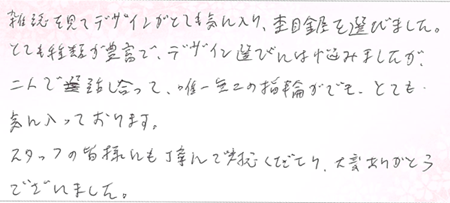 雑誌を見てデザインがとても気に入り、杢目金屋を選びました。
とても種類が豊富で、デザイン選びには悩みましたが、
二人で話し合って、唯一無二の指輪ができ、とても
気に入っております。
スタッフの皆様にも丁寧に対応くださり、大変ありがとう
ございました。